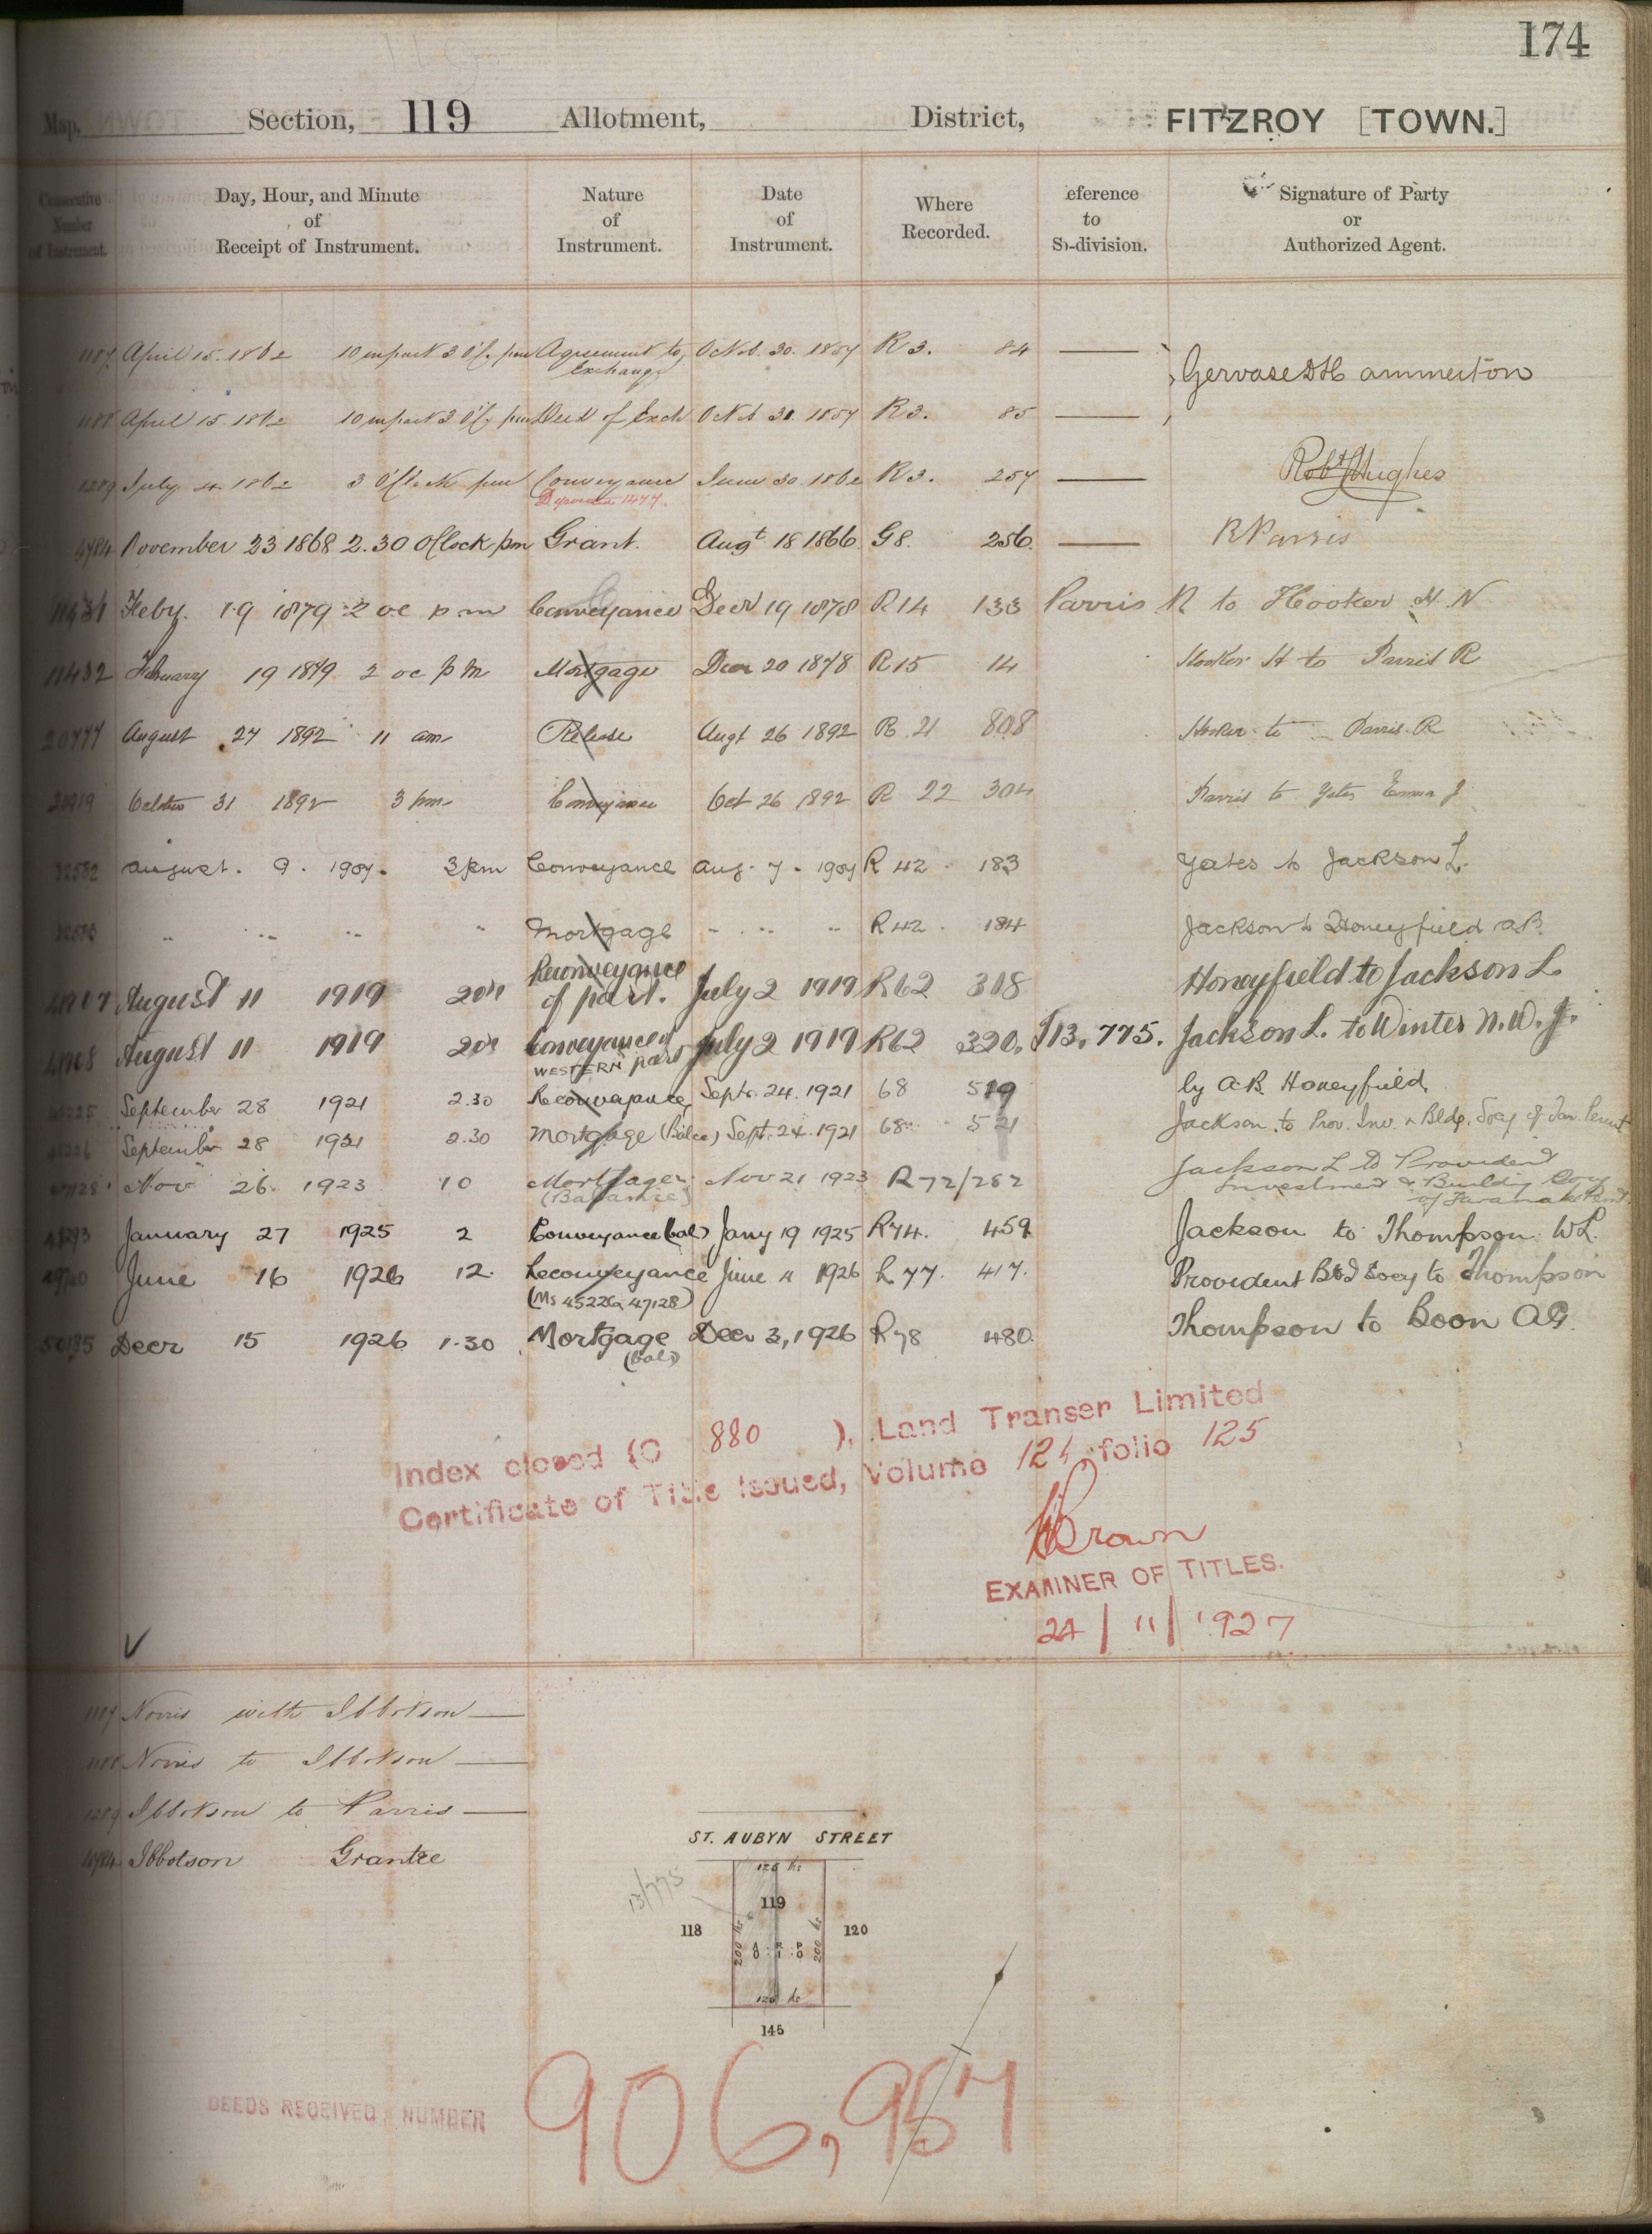 174
Map, Section, 119 Allotment, District, FITZROY [TOWN.]
Consecutive Number of Instrument.
Day, Hour, and Minute of Receipt of Instrument.
Nature of Instrument.
Date of Instrument.
Where Recorded.
eference to S-division.
Signature of Party or Authorized Agent.
1187 April 15. 1862 10 m past 3 O'C. pm Agreement to Exchange Octob. 30. 1857 R3. 84 Gervase D H ammerton
1188 April 15. 1862 10 m past 3 O'C. pm Deed of Exch Octob 31 1857 R3. 85
1289 July 4. 1862 3 O'Clock pm Conveyance June 30 1862 R3. 257 Robt Hughes
4784 November 23 1868 2.30 O'Clock pm Grant. Augt 18 1866 G8. 256. R Parris
11431 Feby. 19 1879 2 oc p m Conveyance Decr 19 1878 R14 133 Parris R to Hooker H. N
11432 February 19 1879 2 oc p m Mortgage Decr 20 1878 R15 14 Hooker H to Parris R
20777 August 27 1892 11 am Release Augt 26 1892 R 21 808 Hooker to Parris. R
October 31 1892 3 pm Conveyance Oct 26 1892 R 22 304 Parris to Yates Emma J
August. 9. 1907. 3 pm Conveyance Aug. 7. 1907 R 42. 183 Yeates to Jackson L.
" " " " Mortgage " " " R42. 184 Jackson to Honeyfield A.B.
August 11 1919 Reconveyance of part. July 2 1919 R62 318 Honeyfield to Jackson L.
August 11 1919 Conveyance of WESTERN part July 2 1919 R62 320. T13. 775. Jackson L. to Winter N. W. J.
September 28 1921 2.30 Reconveyance Sept. 24. 1921 68 519 by A.B. Honeyfield
45226 September 28 1921 2.30 Mortgage (Balce) Sept. 24. 1921 68 521 Jackson. to Prov. Inv. & Bldg. Socy of Tar. Permt
47128 Nov 26. 1923 10 Mortgage (Balance) Nov 21 1923 R72/282 Jackson L to Provident Investment & Building Socy of Taranaki
January 27 1925 2 Conveyance (bal) Jany 19 1925 R74. 459 Jackson to Thompson W L.
June 16 1926 12. Reconveyance June 11 1926 R 77. 417. Provident B & I Socy to Thompson
(Ms 45226 & 47128)
50185 Decr 15 1926 1.30 Mortgage (bal) Decr 3, 1926 R78 480. Thompson to Boon A G.
Index closed (C 880 ), Land Transer Limited
Certificate of Title Issued, Volume 121 folio 125
Brown
EXAMINER OF TITLES.
24 / 11 / 1927
1187 Norris with Ibbotson
1188 Norris to Ibbotson
1289 Ibbotson to Parris
4784 Ibbotson Grantee
ST. AUBYN STREET
13/775
125 lks
119
118
120
200 lks
A R P
0 : 1 : 0
200 lks
125 lks
145
DEEDS RECEIVED NUMBER
906,957